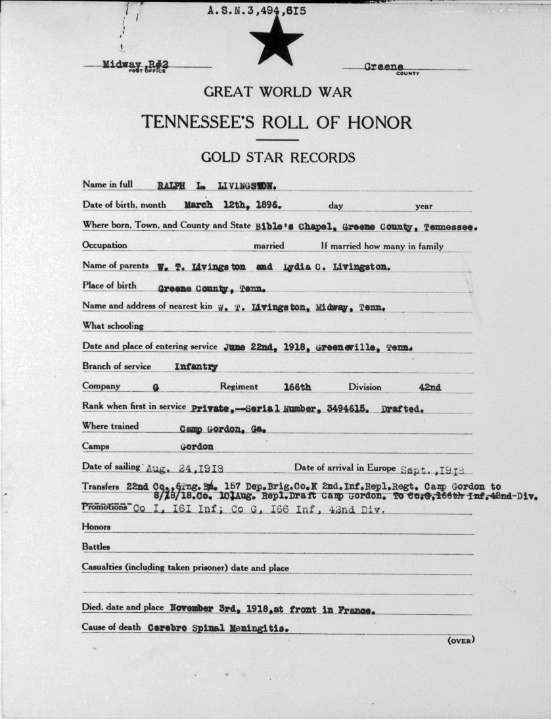 A.S.N.3,494,615
Midway,R#2 Greene
POST OFFICE COUNTY
GREAT WORLD WAR
TENNESSEE'S ROLL OF HONOR
GOLD STAR RECORDS
Name in full RALPH L. LIVINGSTON.
Date of birth, month March 12th, 1896. day year
Where born, Town, and County and State Bible's Chapel, Greene County, Tennessee.
Occupation married If married how many in family
Name of parents W. T. Livingston and Lydia C. Livingston.
Place of birth Greene County, Tenn.
Name and address of nearest kin W. T. Livingston, Midway, Tenn.
What schooling
Date and place of entering service June 22nd, 1918, Greeneville, Tenn.
Branch of service Infantry
Company G Regiment 166th Division 42nd
Rank when first in service Private,--Serial Number, 3494615. Drafted.
Where trained Camp Gordon, Ga.
Camps Gordon
Date of sailing Aug. 24,1918 Date of arrival in Europe Sept.,1918
Transfers 22nd Co., 157 Dep.Brig.Co.K 2nd.Inf.Repl.Regt. Camp Gordon to
8/18/18.Co. Aug. Repl.Draft Camp Gordon. To Co.G,166th Inf,42nd-Div.
Promotions Co I, 161 Inf; Co G, 166 Inf, 42nd Div.
Honors
Battles
Casualties (including taken prisoner) date and place
Died, date and place November 3rd, 1918,at front in France.
Cause of death Cerebro Spinal Meningitis.
(OVER)